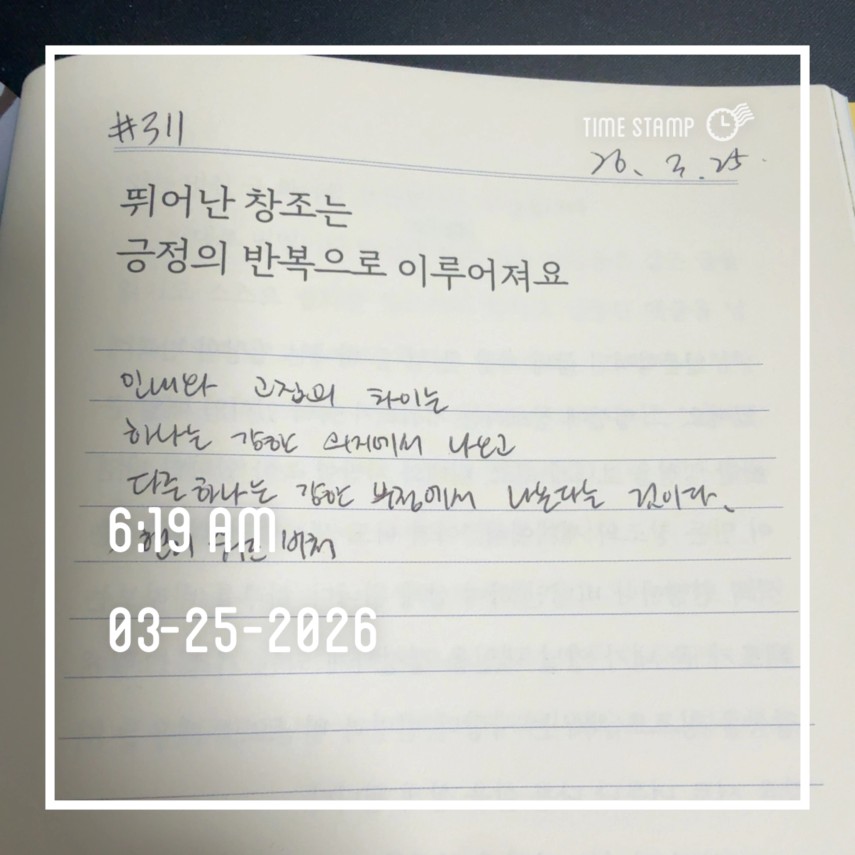 #311
TIME STAMP
26. 3. 25.
뛰어난 창조는
긍정의 반복으로 이루어져요
인내와 고집의 차이는
하나는 강한 의지에서 나오고
다른 하나는 강한 부정에서 나온다는 것이다.
6:19 AM
헨리 워드 비처
03-25-2026